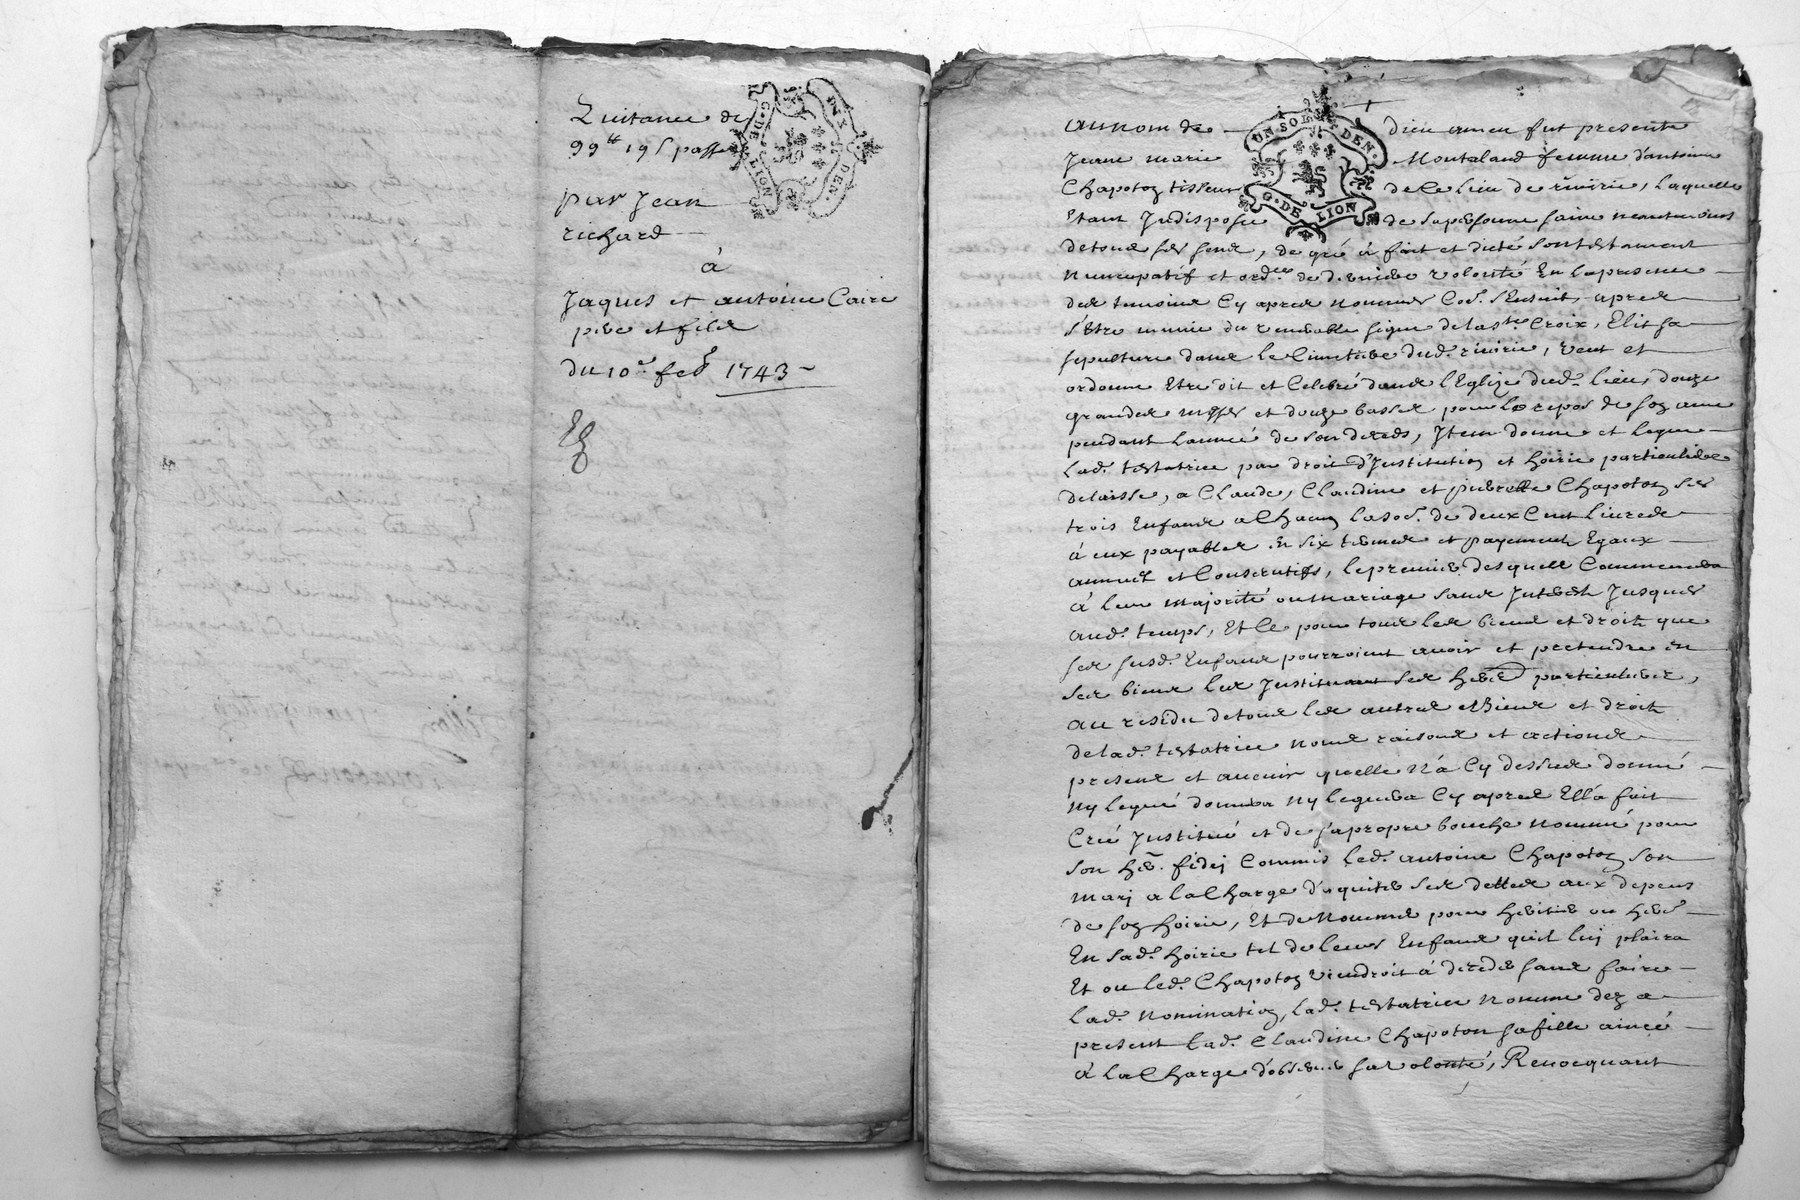 Quitance de
99 tt 19 s passée
par Jean
richard
à
Jaques et antoine Caire
pere et filz
du 10e feb 1743
G. DE LION
UN SOL DEN.
G. DE LION
au nom de Dieu amen fut presente
Jeane marie Montaland femme d'antoine
Chapoton tisseur de Ce lieu de rivirie, Laquelle
Etant Judisposée de sa personne saine neantmoins
de tous ses sens, de gré à fait et dicté son testament
nuncupatif et ordre de derniere volonté En la presence
des temoins Cy apres nommes Coe. s'Ensuit, apres
s'Etre munie du venerable signe de la ste Croix, Elit sa
sepulture dans le Cimetiere dud. rivirie, veut et
ordonne Etre dit et Celebré dans l'Eglize dud. lieu, douze
grandes messes et douze basses pour le repos de son ame
pendant l'année de son deceds, Item donne et legue
Lad. testatrice par droit d'Institution et hoirie particuliere
delaisse, a Claude, Claudine et pierrette Chapoton ses
trois Enfans a Chacun la soe. de deux Cent Livres
à eux payables en six termes et payements Egaux
annuels et Consecutifs, le premier desquels Commencera
à leur majorité ou mariage sans Interests Jusques
aud. temps, Et Ce pour tous les biens et droits que
ses susd. Enfans pourroient avoir et pretendre en
ses biens les Instituant ses hers particuliers,
au residu de tous les autres Biens et droits
de lad. testatrice noms raisons et actions
presens et avenir quelle n'à Cy dessus donné
ny legué donnera ny leguera Cy apres Ell'a fait
Créé Institué et de sa propre bouche nommé pour
son her. fidei Commis led. antoine Chapoton son
mary a la Charge d'aquiter ses dettes aux depens
de son hoirie, Et de Nommer pour heritier ou here
En sad. hoirie tel de leurs Enfans quil luy plaira
Et ou led. Chapoton viendroit à deceder sans faire
lad. nomination, lad. testatrice nomme dez a
present Lad. Claudine Chapoton sa fille ainée
à la Charge d'observer sa volonté, Revocquant